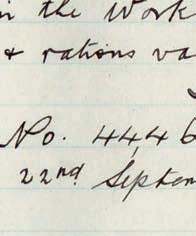 in the Work
& rations va
No. 444 6
22nd Septem